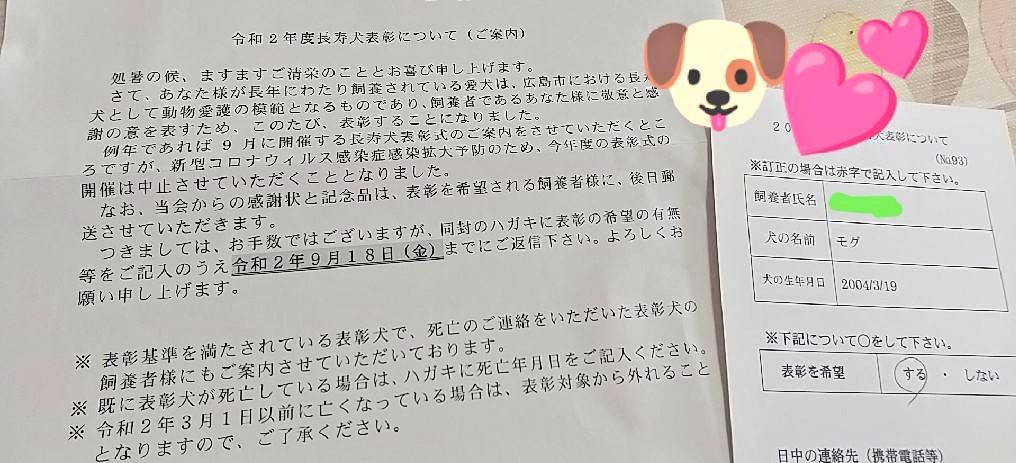 令和２年度長寿犬表彰について（ご案内）
処暑の候、ますますご清栄のこととお喜び申し上げます。
さて、あなた様が長年にわたり飼養されている愛犬は、広島市における長
犬として動物愛護の模範となるものであり、飼養者であるあなた様に敬意と感
謝の意を表すため、このたび、表彰することになりました。
例年であれば９月に開催する長寿犬表彰式のご案内をさせていただくとこ
ろですが、新型コロナウィルス感染症感染拡大予防のため、今年度の表彰式の
開催は中止させていただくこととなりました。
なお、当会からの感謝状と記念品は、表彰を希望される飼養者様に、後日郵
送させていただきます。
つきましては、お手数ではございますが、同封のハガキに表彰の希望の有無
等をご記入のうえ令和２年９月１８日（金）までにご返信下さい。よろしくお
願い申し上げます。
※ 表彰基準を満たされている表彰犬で、死亡のご連絡をいただいた表彰犬の
飼養者様にもご案内させていただいております。
※ 既に表彰犬が死亡している場合は、ハガキに死亡年月日をご記入ください。
※ 令和２年３月１日以前に亡くなっている場合は、表彰対象から外れること
となりますので、ご了承ください。
２０ 犬表彰について
（№93）
※訂正の場合は赤字で記入して下さい。
飼養者氏名
犬の名前 モグ
犬の生年月日 2004/3/19
※下記について○をして下さい。
表彰を希望 する ・ しない
日中の連絡先（携帯電話等）